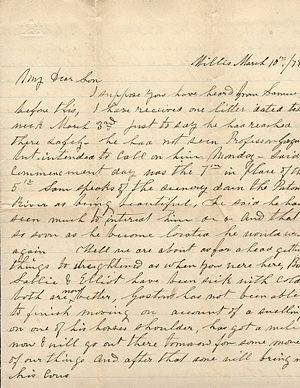 Willis March 10th/78
My Dear Son
I suppose you have heard from Samuel
before this, I have received one letter dated
March 3rd just to say he had reached
there safely. he had not seen Professor
but intended to call on him Monday. Said
Commencement day was the 7th in place of the
5th Sam speaks of the scenery down the
River as being beautiful, he said he had
seen much to interest him and that
so soon as he become located he would write
again Well we are about as far a head getting
things straightened as when you were here,
Sallie & Elliot have been sick with cold
both are now better, Gaston has not been able
to finish moving on account of a swelling
on one of his horses shoulder, has got a mule
now & will go out there tomorrow for some more
of our things and after that one will bring
his Cows